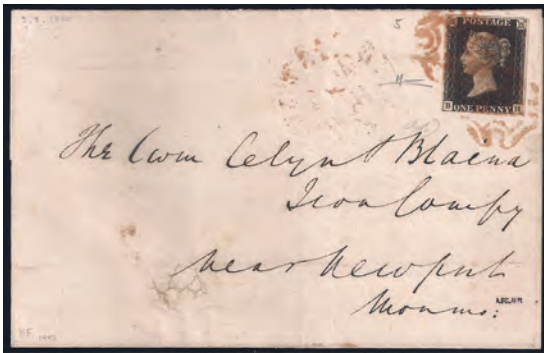 5
POSTAGE
ONE PENNY
The Cwm Celyn & Blaena
Iron Compy
near Newport
Monmo: